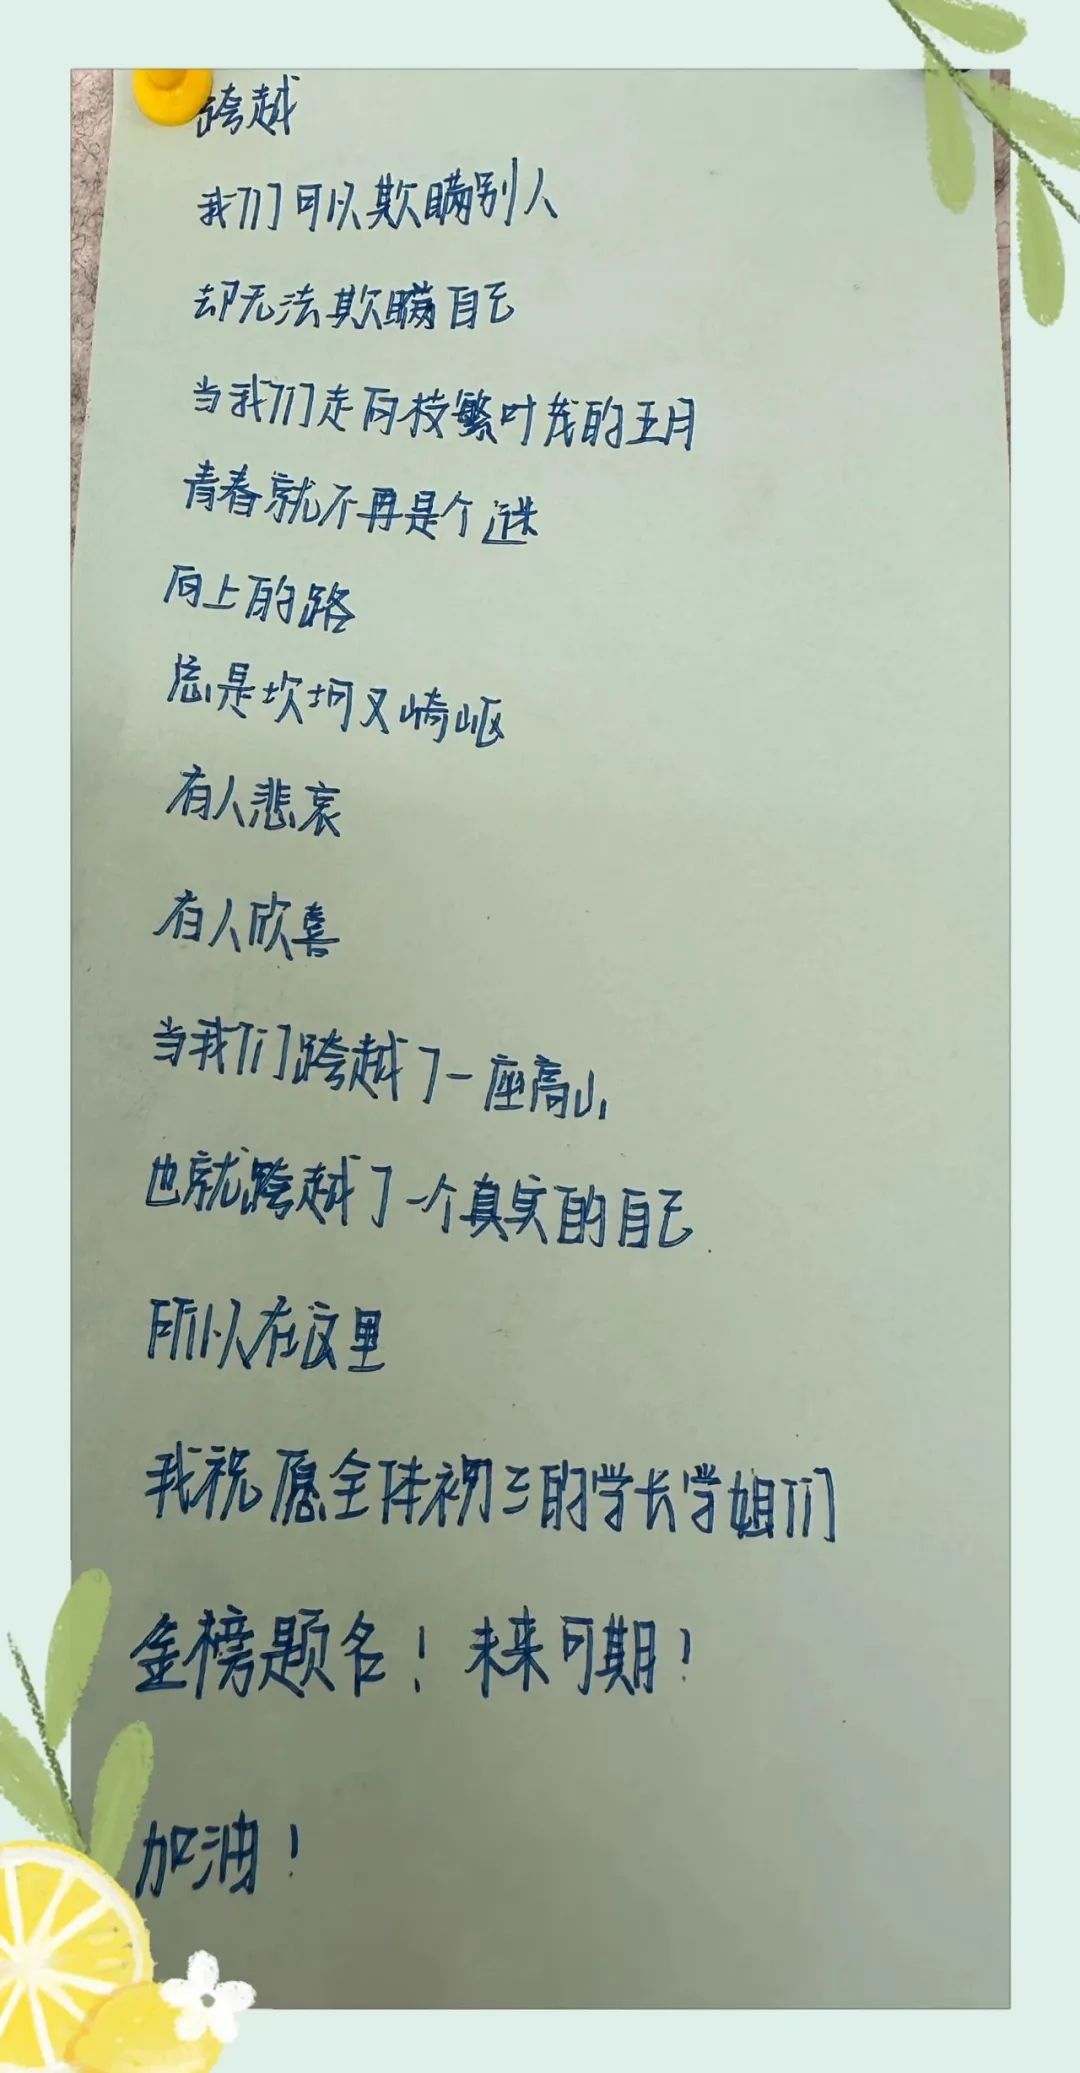 跨越
我们可以欺瞒别人
却无法欺瞒自己
当我们走向枝繁叶茂的五月
青春就不再是个谜
向上的路
总是坎坷又崎岖
有人悲哀
有人欣喜
当我们跨越了一座高山
也就跨越了一个真实的自己
所以在这里
我祝愿全体初三的学长学姐们
金榜题名！未来可期！
加油！